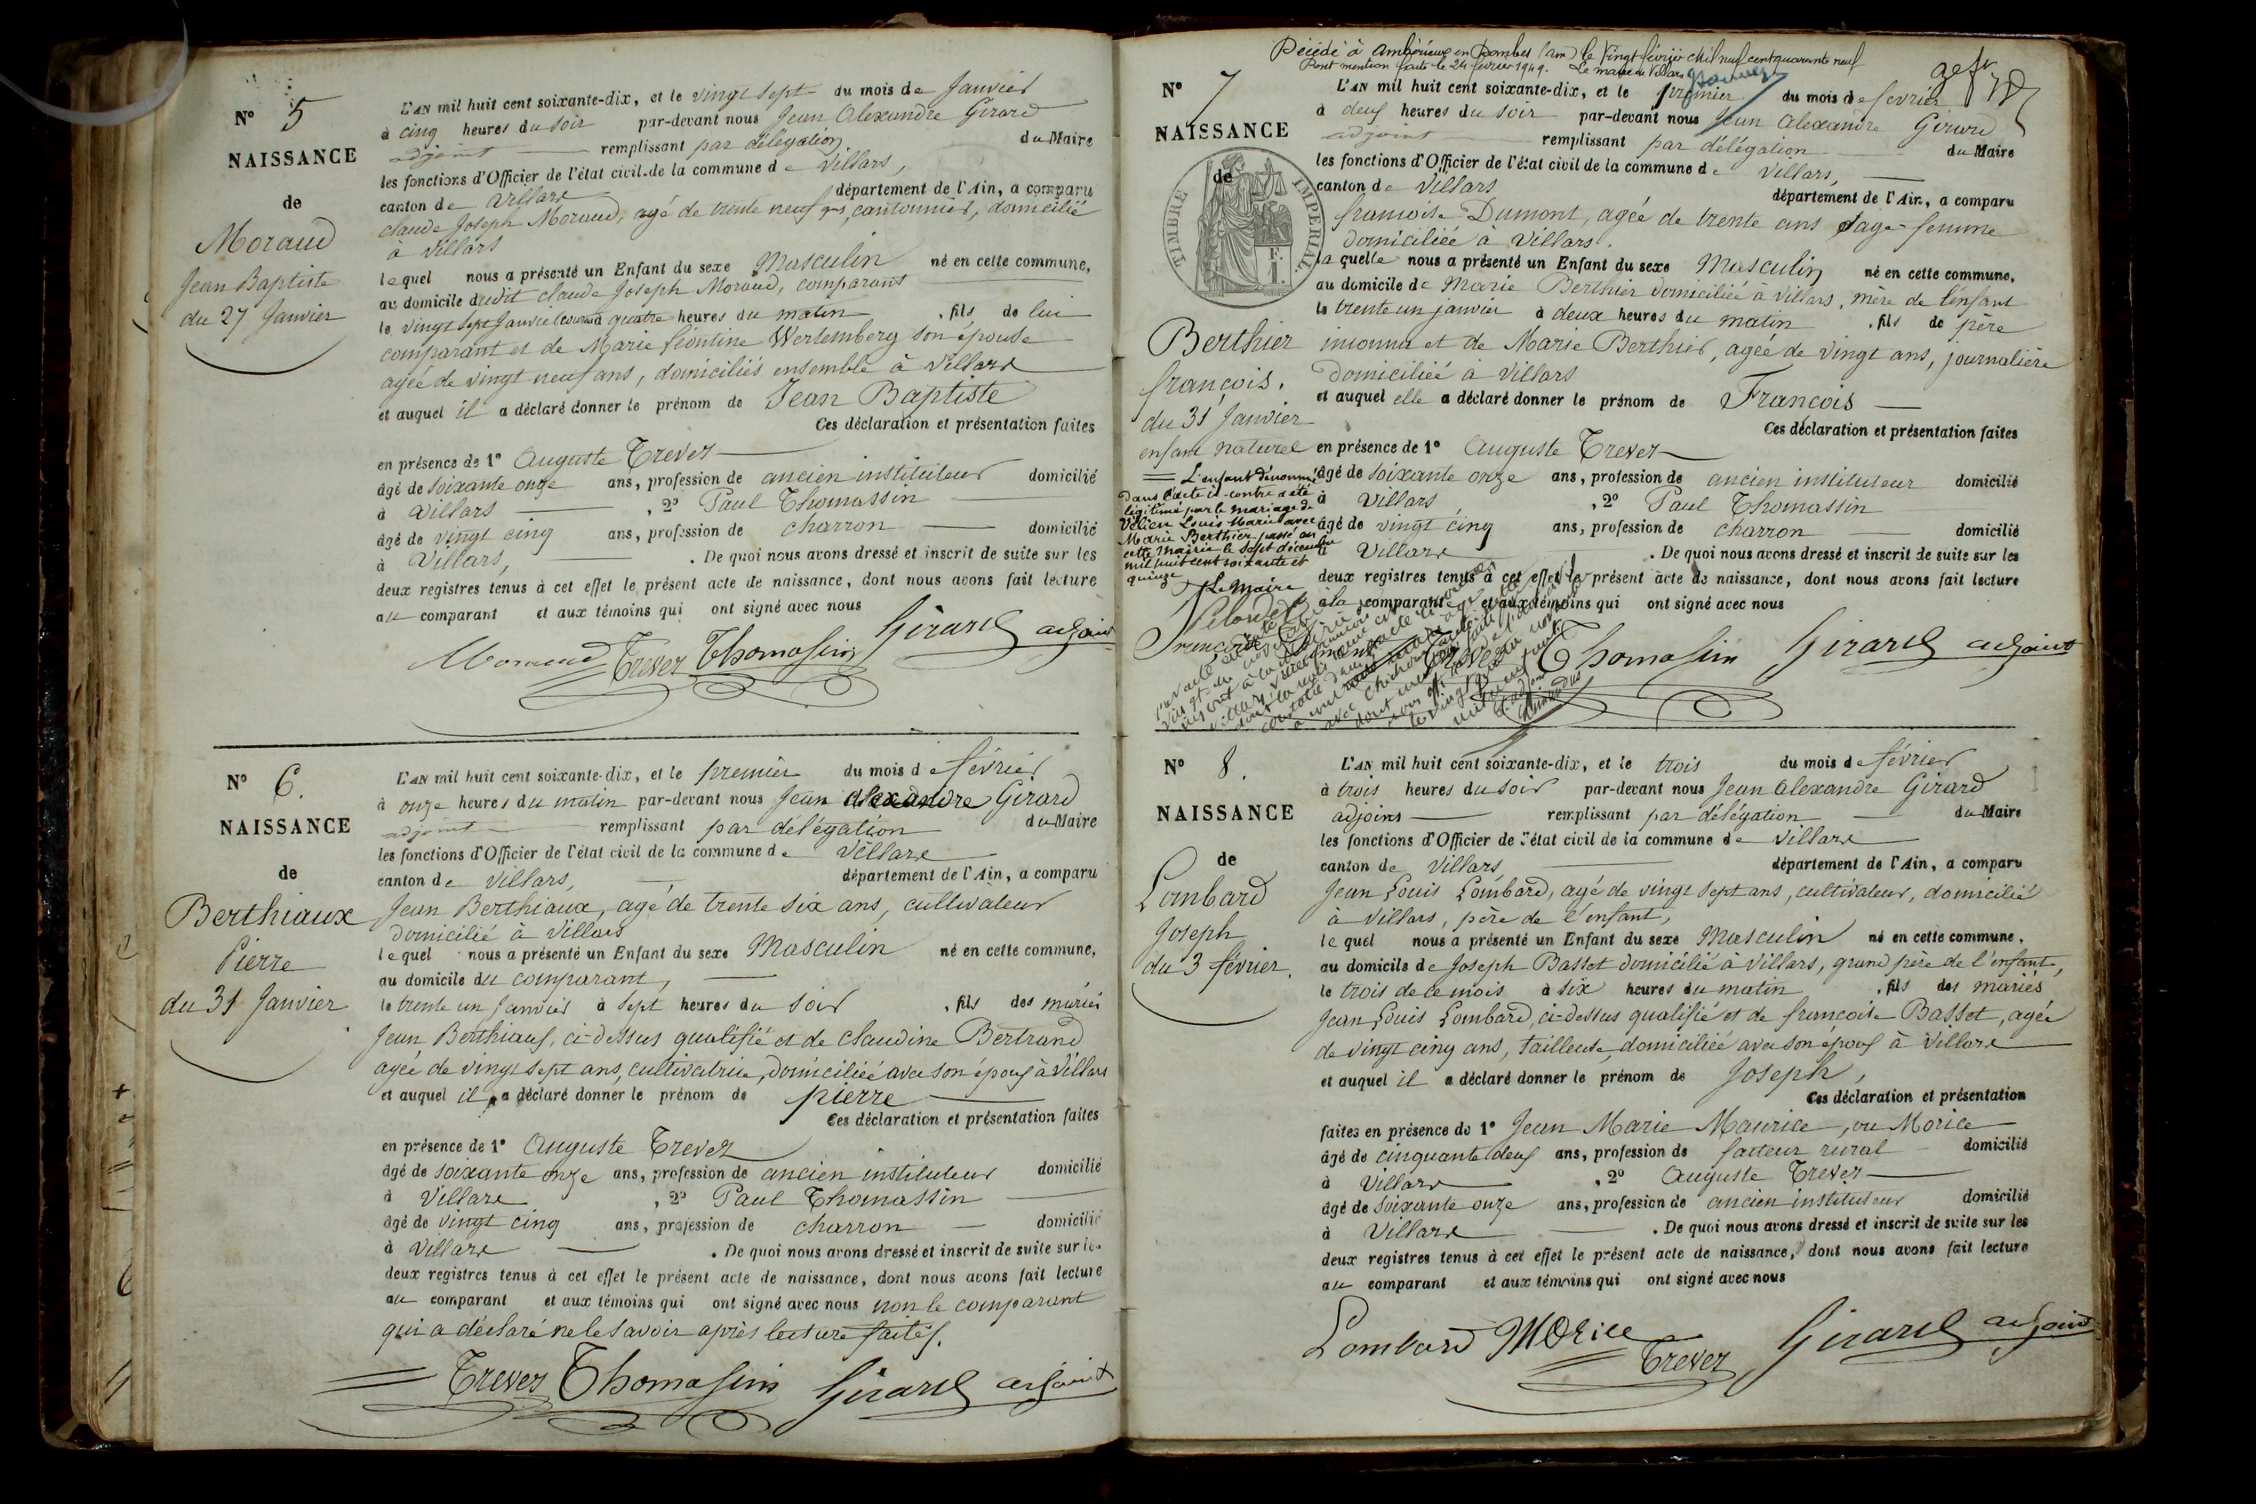 N° 5
NAISSANCE
de
Moraud
Jean Baptiste
du 27 Janvier
L'AN mil huit cent soixante-dix, et le vingt sept du mois de Janvier
à cinq heures du soir par-devant nous Jean Alexandre Girard
adjoint remplissant par délégation du Maire
les fonctions d'Officier de l'état civil de la commune de Villars,
canton de Villars département de l'Ain, a comparu
claude Joseph Moraud, agé de trente neuf ans, cantonnier, domicilié
à Villars
lequel nous a présenté un Enfant du sexe Masculin né en cette commune,
au domicile dudit claude Joseph Moraud, comparant
le vingt sept Janvier courant à quatre heures du matin, fils de lui
comparant et de Marie Léontine Wertemberg son épouse
agée de vingt neuf ans, domiciliés ensemble à Villars
et auquel il a déclaré donner le prénom de Jean Baptiste
Ces déclaration et présentation faites
en présence de 1° Auguste Trever
âgé de soixante onze ans, profession de ancien instituteur domicilié
à Villars, 2° Paul Thomassin
âgé de vingt cinq ans, profession de charron domicilié
à Villars, . De quoi nous avons dressé et inscrit de suite sur les
deux registres tenus à cet effet le présent acte de naissance, dont nous avons fait lecture
au comparant et aux témoins qui ont signé avec nous
Moraud Trever Thomassin Girard adjoint
N° 6.
NAISSANCE
de
Berthiaux
Pierre
du 31 Janvier
L'AN mil huit cent soixante-dix, et le premier du mois de février
à onze heures du matin par-devant nous Jean Alexandre Girard
adjoint remplissant par délégation du Maire
les fonctions d'Officier de l'état civil de la commune de Villars
canton de Villars, département de l'Ain, a comparu
Jean Berthiaux, agé de trente six ans, cultivateur
domicilié à Villars
lequel nous a présenté un Enfant du sexe Masculin né en cette commune,
au domicile du comparant,
le trente un Janvier à sept heures du soir, fils des mariés
Jean Berthiaux, ci-dessus qualifié et de claudine Bertrand
agée de vingt sept ans, cultivatrice, domiciliée avec son époux à Villars
et auquel il a déclaré donner le prénom de pierre
Ces déclaration et présentation faites
en présence de 1° Auguste Trever
âgé de soixante onze ans, profession de ancien instituteur domicilié
à Villars, 2° Paul Thomassin
âgé de vingt cinq ans, profession de charron domicilié
à Villars . De quoi nous avons dressé et inscrit de suite sur les
deux registres tenus à cet effet le présent acte de naissance, dont nous avons fait lecture
au comparant et aux témoins qui ont signé avec nous non le comparant
qui a déclaré ne le savoir après lecture faite.
Trever Thomassin Girard adjoint
Décédé à Ambérieux en Dombes (Ain) le Vingt février Mil neuf cent quarante neuf
Dont mention faite le 24 février 1949. Le maire de Villars
N° 7
NAISSANCE
de
TIMBRE IMPERIAL.
Berthier
françois.
du 31 Janvier
enfant naturel
L'enfant dénommé
dans l'acte ci-contre a été
légitimé par le mariage de
Vélien Louis Marie avec
Marie Berthier passé en
cette mairie le sept décembre
mil huit cent soixante et
quinze
Le Maire
L'AN mil huit cent soixante-dix, et le premier du mois de février
à deux heures du soir par-devant nous Jean Alexandre Girard
adjoint remplissant par délégation du Maire
les fonctions d'Officier de l'état civil de la commune de Villars,
canton de Villars département de l'Ain, a comparu
francoise Dumont, agée de trente ans sage-femme
domiciliée à Villars.
laquelle nous a présenté un Enfant du sexe Masculin né en cette commune,
au domicile de Marie Berthier domiciliée à Villars, mère de l'enfant
le trente un janvier à deux heures du matin, fils de père
inconnu et de Marie Berthier, agée de vingt ans, journalière
domiciliée à Villars
et auquel elle a déclaré donner le prénom de François
Ces déclaration et présentation faites
en présence de 1° Auguste Trever
âgé de soixante onze ans, profession de ancien instituteur domicilié
à Villars, 2° Paul Thomassin
âgé de vingt cinq ans, profession de charron domicilié
à Villars . De quoi nous avons dressé et inscrit de suite sur les
deux registres tenus à cet effet le présent acte de naissance, dont nous avons fait lecture
à la comparante et aux témoins qui ont signé avec nous
Trever Thomassin Girard adjoint
N° 8.
NAISSANCE
de
Lombard
Joseph
du 3 février.
L'AN mil huit cent soixante-dix, et le trois du mois de février
à trois heures du soir par-devant nous Jean Alexandre Girard
adjoint remplissant par délégation du Maire
les fonctions d'Officier de l'état civil de la commune de Villars
canton de Villars département de l'Ain, a comparu
Jean Louis Lombard, agé de vingt sept ans, cultivateur, domicilié
à Villars, père de l'enfant,
lequel nous a présenté un Enfant du sexe Masculin né en cette commune,
au domicile de Joseph Basset domicilié à Villars, grand père de l'enfant,
le trois de ce mois à six heures du matin, fils des mariés
Jean Louis Lombard, ci-dessus qualifié et de francoise Basset, agée
de vingt cinq ans, tailleuse, domiciliée avec son époux à Villars
et auquel il a déclaré donner le prénom de Joseph,
Ces déclaration et présentation
faites en présence de 1° Jean Marie Maurice, ou Morice
âgé de cinquante deux ans, profession de facteur rural domicilié
à Villars, 2° Auguste Trever
âgé de soixante onze ans, profession de ancien instituteur domicilié
à Villars . De quoi nous avons dressé et inscrit de suite sur les
deux registres tenus à cet effet le présent acte de naissance, dont nous avons fait lecture
au comparant et aux témoins qui ont signé avec nous
Lombard Morice Trever Girard adjoint